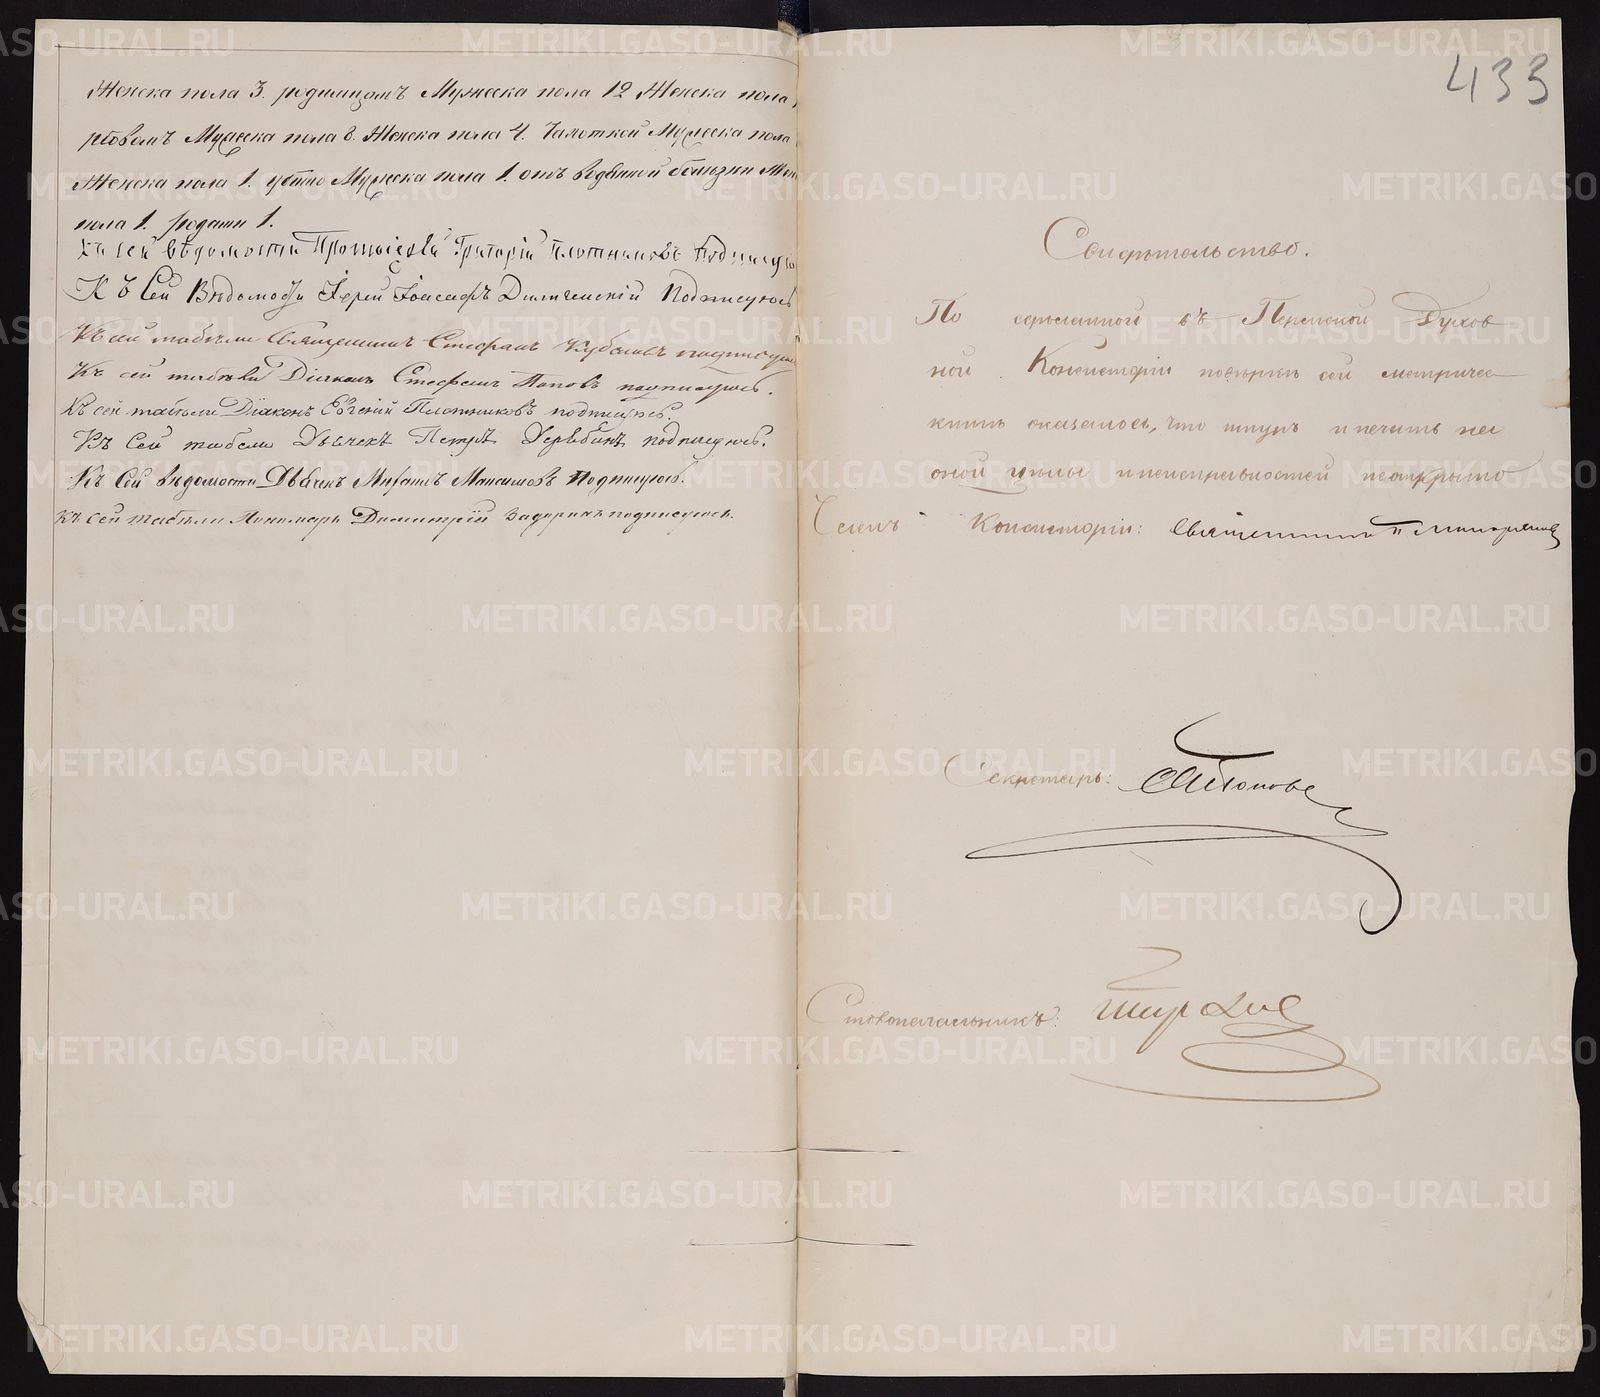 Женска пола 3. родимцомъ Мужеска пола 12 Женска пола
Мужеска пола 8. Женска пола 4. Чахоткой Мужеска пола
Женска пола 1. убито Мужеска пола 1. отъ водяной болѣзни Жен
пола 1. родами 1.
Къ сей вѣдомости Протоіерей Григорій Плотниковъ Подписую
Къ Сей Вѣдомости Іерей Іоасафъ Подписуюсь
Къ сей табели Священникъ Стефанъ подписую
Къ сей табели Діаконъ Стефанъ Поповъ подписуюсь.
Къ сей табели Діаконъ Евгеній Плотниковъ подпишусь.
Къ Сей табели Дьячекъ Петръ Дерябинъ подписуюсь.
Къ Сей вѣдомости Дьячекъ Максимовъ Подписуюсь.
Къ сей табели Пономарь Димитрій Задоринъ подписуюсь.
433
Свидѣтельство.
По въ Пермской Духов
ной Консисторіи повѣркѣ сей метричес
книги оказалось, что шнуръ и печать на
оной цѣлы и неисправностей не открыто
Членъ Консисторіи: Священникъ
Секретарь: Поповъ
Столоначальникъ:
METRIKI.GASO-URAL.RU